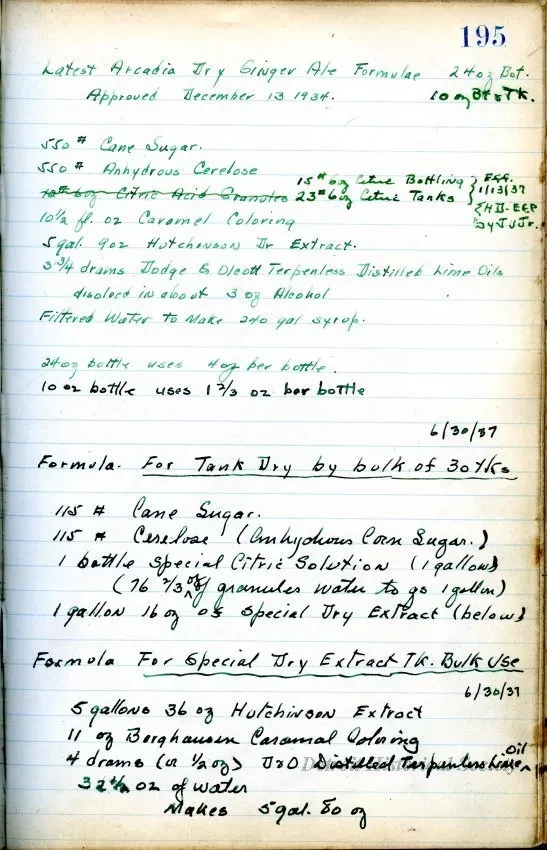 195
Latest Arcadia Dry Ginger Ale Formulae 24 oz Bot.
Approved December 13 1934. 10 oz Bt & Tk.
550 # Cane Sugar.
550 # Anhydrous Cerelose
15 # 6 oz Citric Bottling } EEG.
12 # 6 oz Citric Acid Granules 23 # 6 oz Citric Tanks } 1/13/37
10 1/2 fl. oz Caramel Coloring
by JJJr.
5 gal 9 oz Hutchinson Dr Extract.
3 3/4 drams Dodge & Olcott Terpenless Distilled Lime Oils
disolced in about 3 oz Alcohol
Filtered Water to Make 240 gal syrop.
24 oz bottle uses 4 oz per bottle.
10 oz bottle uses 1 2/3 oz per bottle
6/30/37
Formula. For Tank Dry by bulk of 30 tks
115 # Cane Sugar.
115 # Cerelose (Anhydrous Corn Sugar.)
1 bottle special Citric Solution (1 gallon)
(76 2/3 oz granules water to go 1 gallon)
1 gallon 16 oz of Special Dry Extract (below)
Formula For Special Dry Extract Tk. Bulk Use
6/30/37
5 gallons 36 oz Hutchinson Extract
11 oz Berghausen Caramal Coloring
4 drams (or 1/2 oz) D&O Distilled Terpenless Lime Oil
32 1/2 oz of water
Makes 5 gal. 80 oz